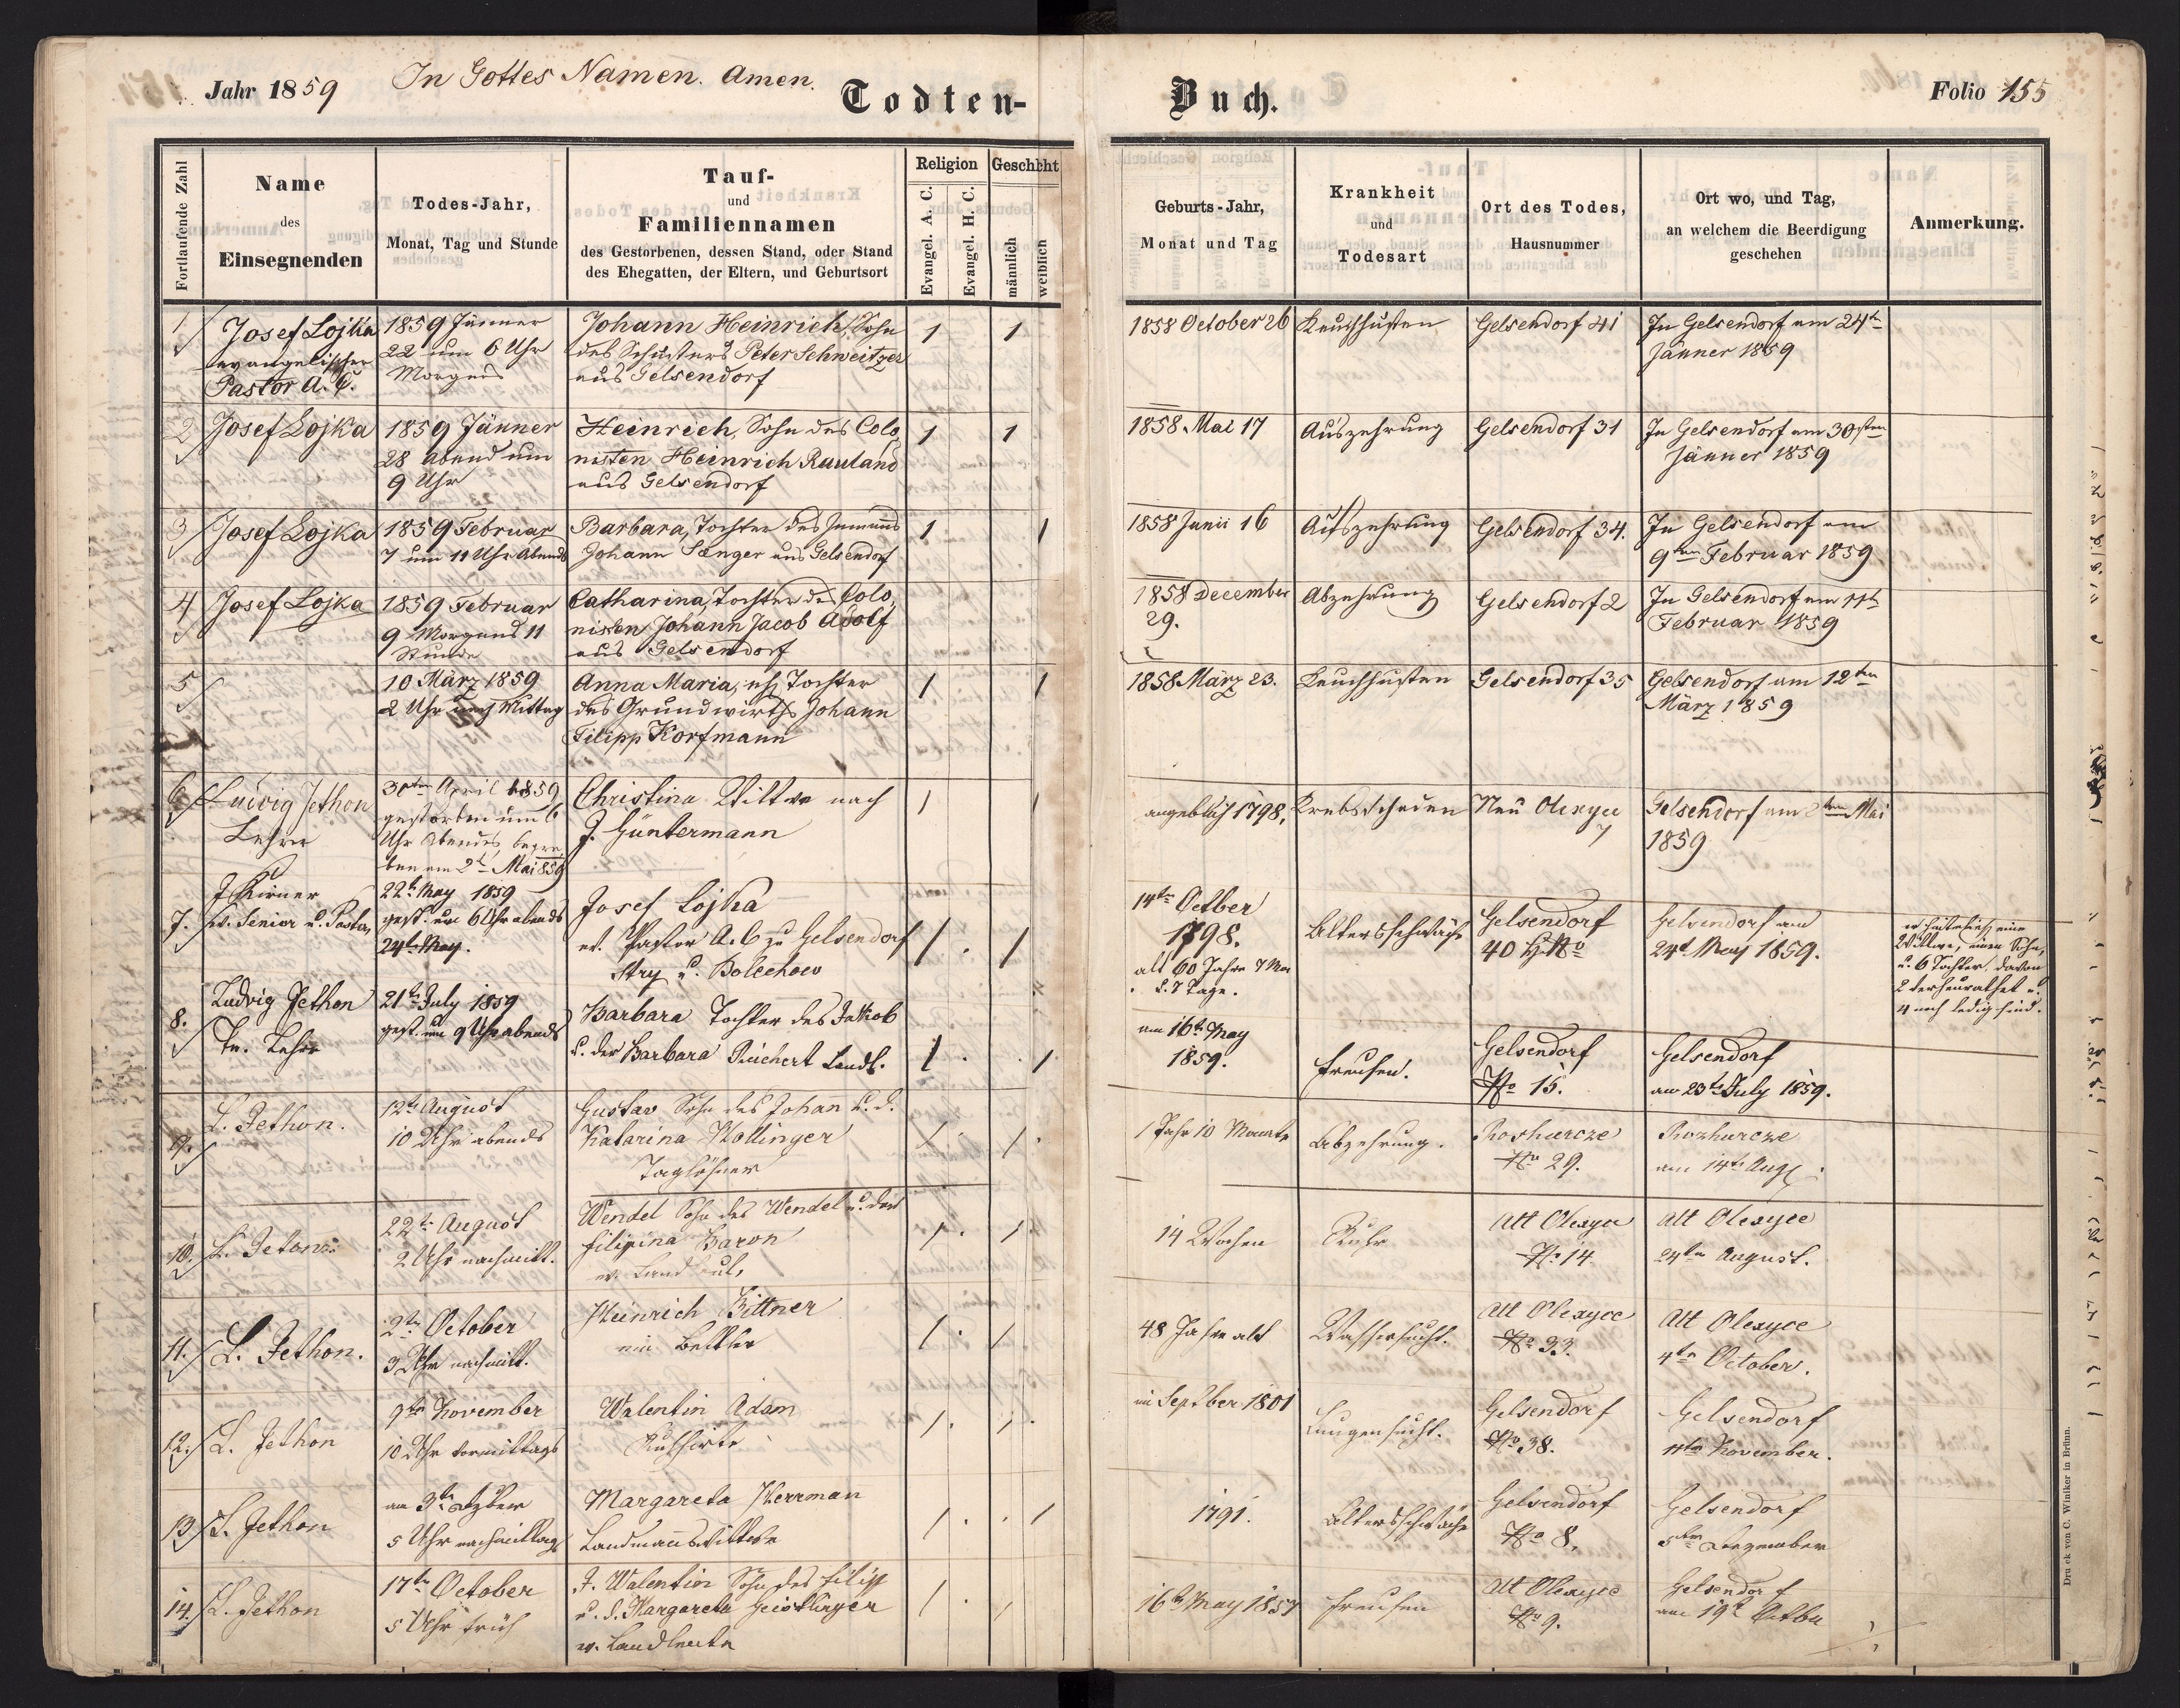 Jahr 1859 In Gottes Namen. Amen.
Todten-Buch.
Folio 155
Fortlaufende Zahl
Name
des
Einsegnenden
Todes-Jahr,
Monat, Tag und Stunde
Tauf-
und
Familiennamen
des Gestorbenen, dessen Stand, oder Stand
des Ehegatten, der Eltern, und Geburtsort
Religion
Evangel. A. C.
Evangel. H. C.
Geschlecht
männlich
weiblich
Geburts-Jahr,
Monat und Tag
Krankheit
und
Todesart
Ort des Todes,
Hausnummer
Ort wo, und Tag,
an welchem die Beerdigung
geschehen
Anmerkung.
1
Josef Lojka
evangelischer
Pastor A. C.
1859 Jänner
22 um 6 Uhr
Morgens
Johann Heinrich, Sohn
des Schusters Peter Schweitzer
aus Gelsendorf
1
1
1858 October 26
Keuchhusten
Gelsendorf 41
In Gelsendorf am 24t
Jänner 1859
2
Josef Lojka
1859 Jänner
28 Abend um
9 Uhr
Heinrich, Sohn des Colo
nisten Heinrich Rauland
aus Gelsendorf
1
1
1858 Mai 17
Auszehrung
Gelsendorf 31
In Gelsendorf am 30sten
Jänner 1859
3
Josef Lojka
1859 Februar
7 um 11 Uhr Abends
Barbara, Tochter des
Johann Sänger aus Gelsendorf
1
1
1858 Junii 16
Auszehrung
Gelsendorf 34.
In Gelsendorf am
9ten Februar 1859
4
Josef Lojka
1859 Februar
9 Morgens 11
Stunde
Catharina, Tochter des Colo,
nisten Johann Jacob Adolf
aus Gelsendorf
1858 December
29.
Abzehrung
Gelsendorf 2
In Gelsendorf am 11t
Februar 1859
5
10 März 1859
2 Uhr nach Mittag
Anna Maria, ehl Tochter
des Grundwirths Johann
Filipp Korfmann
1
1
1858 März 23.
Keuchhusten
Gelsendorf 35
Gelsendorf am 12ten
März 1859
6
Ludwig Jethon
Lehrer
30ten April 1859
gestorben um 6
Uhr Abends, begra
ben am 2t Mai 859
Christina Wittwe nach
J. Güntermann
1
1
angeblich 1798,
Krebsschaden
Neu Olexyce
7
Gelsendorf am 2ten Mai
1859
7.
ev. Senior u. Pastor
22t May 1859
gest. um 6 Uhr abends
24t May.
Josef Lojka
ev. Pastor A. C zu Gelsendorf
Stry u. Bolechow
1
1
14ten Octber
1798.
alt 60 Jahre 7 Mon
u. 7 Tage.
Altersschwäche
Gelsendorf
40 H No
Gelsendorf am
24t May 1859.
er hinterließ eine
Wittwe, einen Sohn,
u. 6 Töchter, davon
2 verheurathet u.
4 noch ledig sind.
8.
Ludvig Jethon
Lehrer
21t July 1859
gest. um 9 Uhr abends
Barbara Tochter des Jakob
u. der Barbara Reichert Landl.
1
1
am 16t May
1859.
Freusen.
Gelsendorf
No 15.
Gelsendorf
am 23t July 1859.
9.
L. Jethon.
12t August
10 Uhr abends
Gustav Sohn des Johan u. d.
Katarina Hollinger
Taglöhner
1
1
1 Jahr 10 Monate
Abzehrung.
Rozhurcze
No 29.
Rozhurcze
am 14t Aug
10.
L. Jeton
22t August
2 Uhr nachmitt.
Wendel Sohn des Wendel u. der
Filipina Baron
1
1
14 Wochen
Ruhr
Alt Olexyce
No 14.
Alt Olexyce
24ten August.
11.
L. Jethon.
2ten October
3 Uhr nachmitt.
Heinrich Bittner
ein Bettler
1
1
48 Jahre alt
Wassersucht.
Alt Olexyce
No 33.
Alt Olexyce
4ten October.
12.
L. Jethon
9ten November
10 Uhr vormittags
Walentin Adam
1
1
im Septber 1801
Lungensucht.
Gelsendorf
No 38.
Gelsendorf
11ten November.
13
L. Jethon
am 3t Dzber
5 Uhr nachmittags
Margareta Herrman
Landmannswittwe
1
1
1791.
Altersschwäche
Gelsendorf
No 8.
Gelsendorf
5ten Dezember
14.
L. Jethon
17ten October
5 Uhr früh
F. Walentin Sohn des Filipp
u. d. Margareta Geislinger
ev. Landleute
1
1
16t May 1857
Freusen
Alt Olexyce
No 9.
Gelsendorf
am 19t Octbr
Druck von C. Winiker in Brünn.